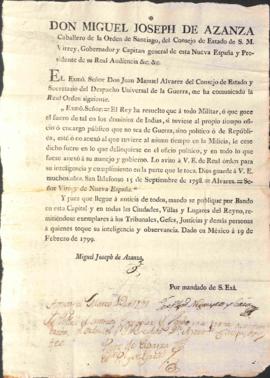 DON MIGUEL JOSEPH DE AZANZA
Caballero de la Orden de Santiago, del Consejo de Estado de S. M.
Virrey, Gobernador y Capitan general de esta Nueva España y Pre-
sidente de su Real Audiencia &c. &c.
EL Exmô. Señor Don Juan Manuel Alvarez del Consejo de Estado y
Secretario del Despacho Universal de la Guerra, me ha comunicado la
Real Orden siguiente.
„Exmô. Señor.= El Rey ha resuelto que á todo Militar, ó que goce
el fuero de tal en los dominios de Indias, si tuviese al propio tiempo ofi-
cio ó encargo público que no sea de Guerra, sino político ó de Repúbli-
ca, esté ó no anexo al que tuviere al mismo tiempo en la milicia, le cese
dicho fuero en lo que delinquiere en el oficio político, y en todo lo que
fuese anexo á su manejo y gobierno. Lo aviso á V. E. de Real órden para
su inteligencia y cumplimiento en la parte que le toca. Dios guarde á V. E.
muchos años. San Ildefonso 15 de Septiembre de 1798.= Alvarez.= Se-
ñor Virrey de Nueva España."
Y para que llegue á noticia de todos, mando se publique por Bando
en esta Capital y en todas las Ciudades, Villas y Lugares del Reyno, re-
mitiéndose exemplares á los Tribunales, Gefes, Justicias y demás personas
á quienes toque su inteligencia y observancia. Dado en México á 19 de
Febrero de 1799.
Miguel Joseph de Azanza.
Por mandado de S. Exâ.